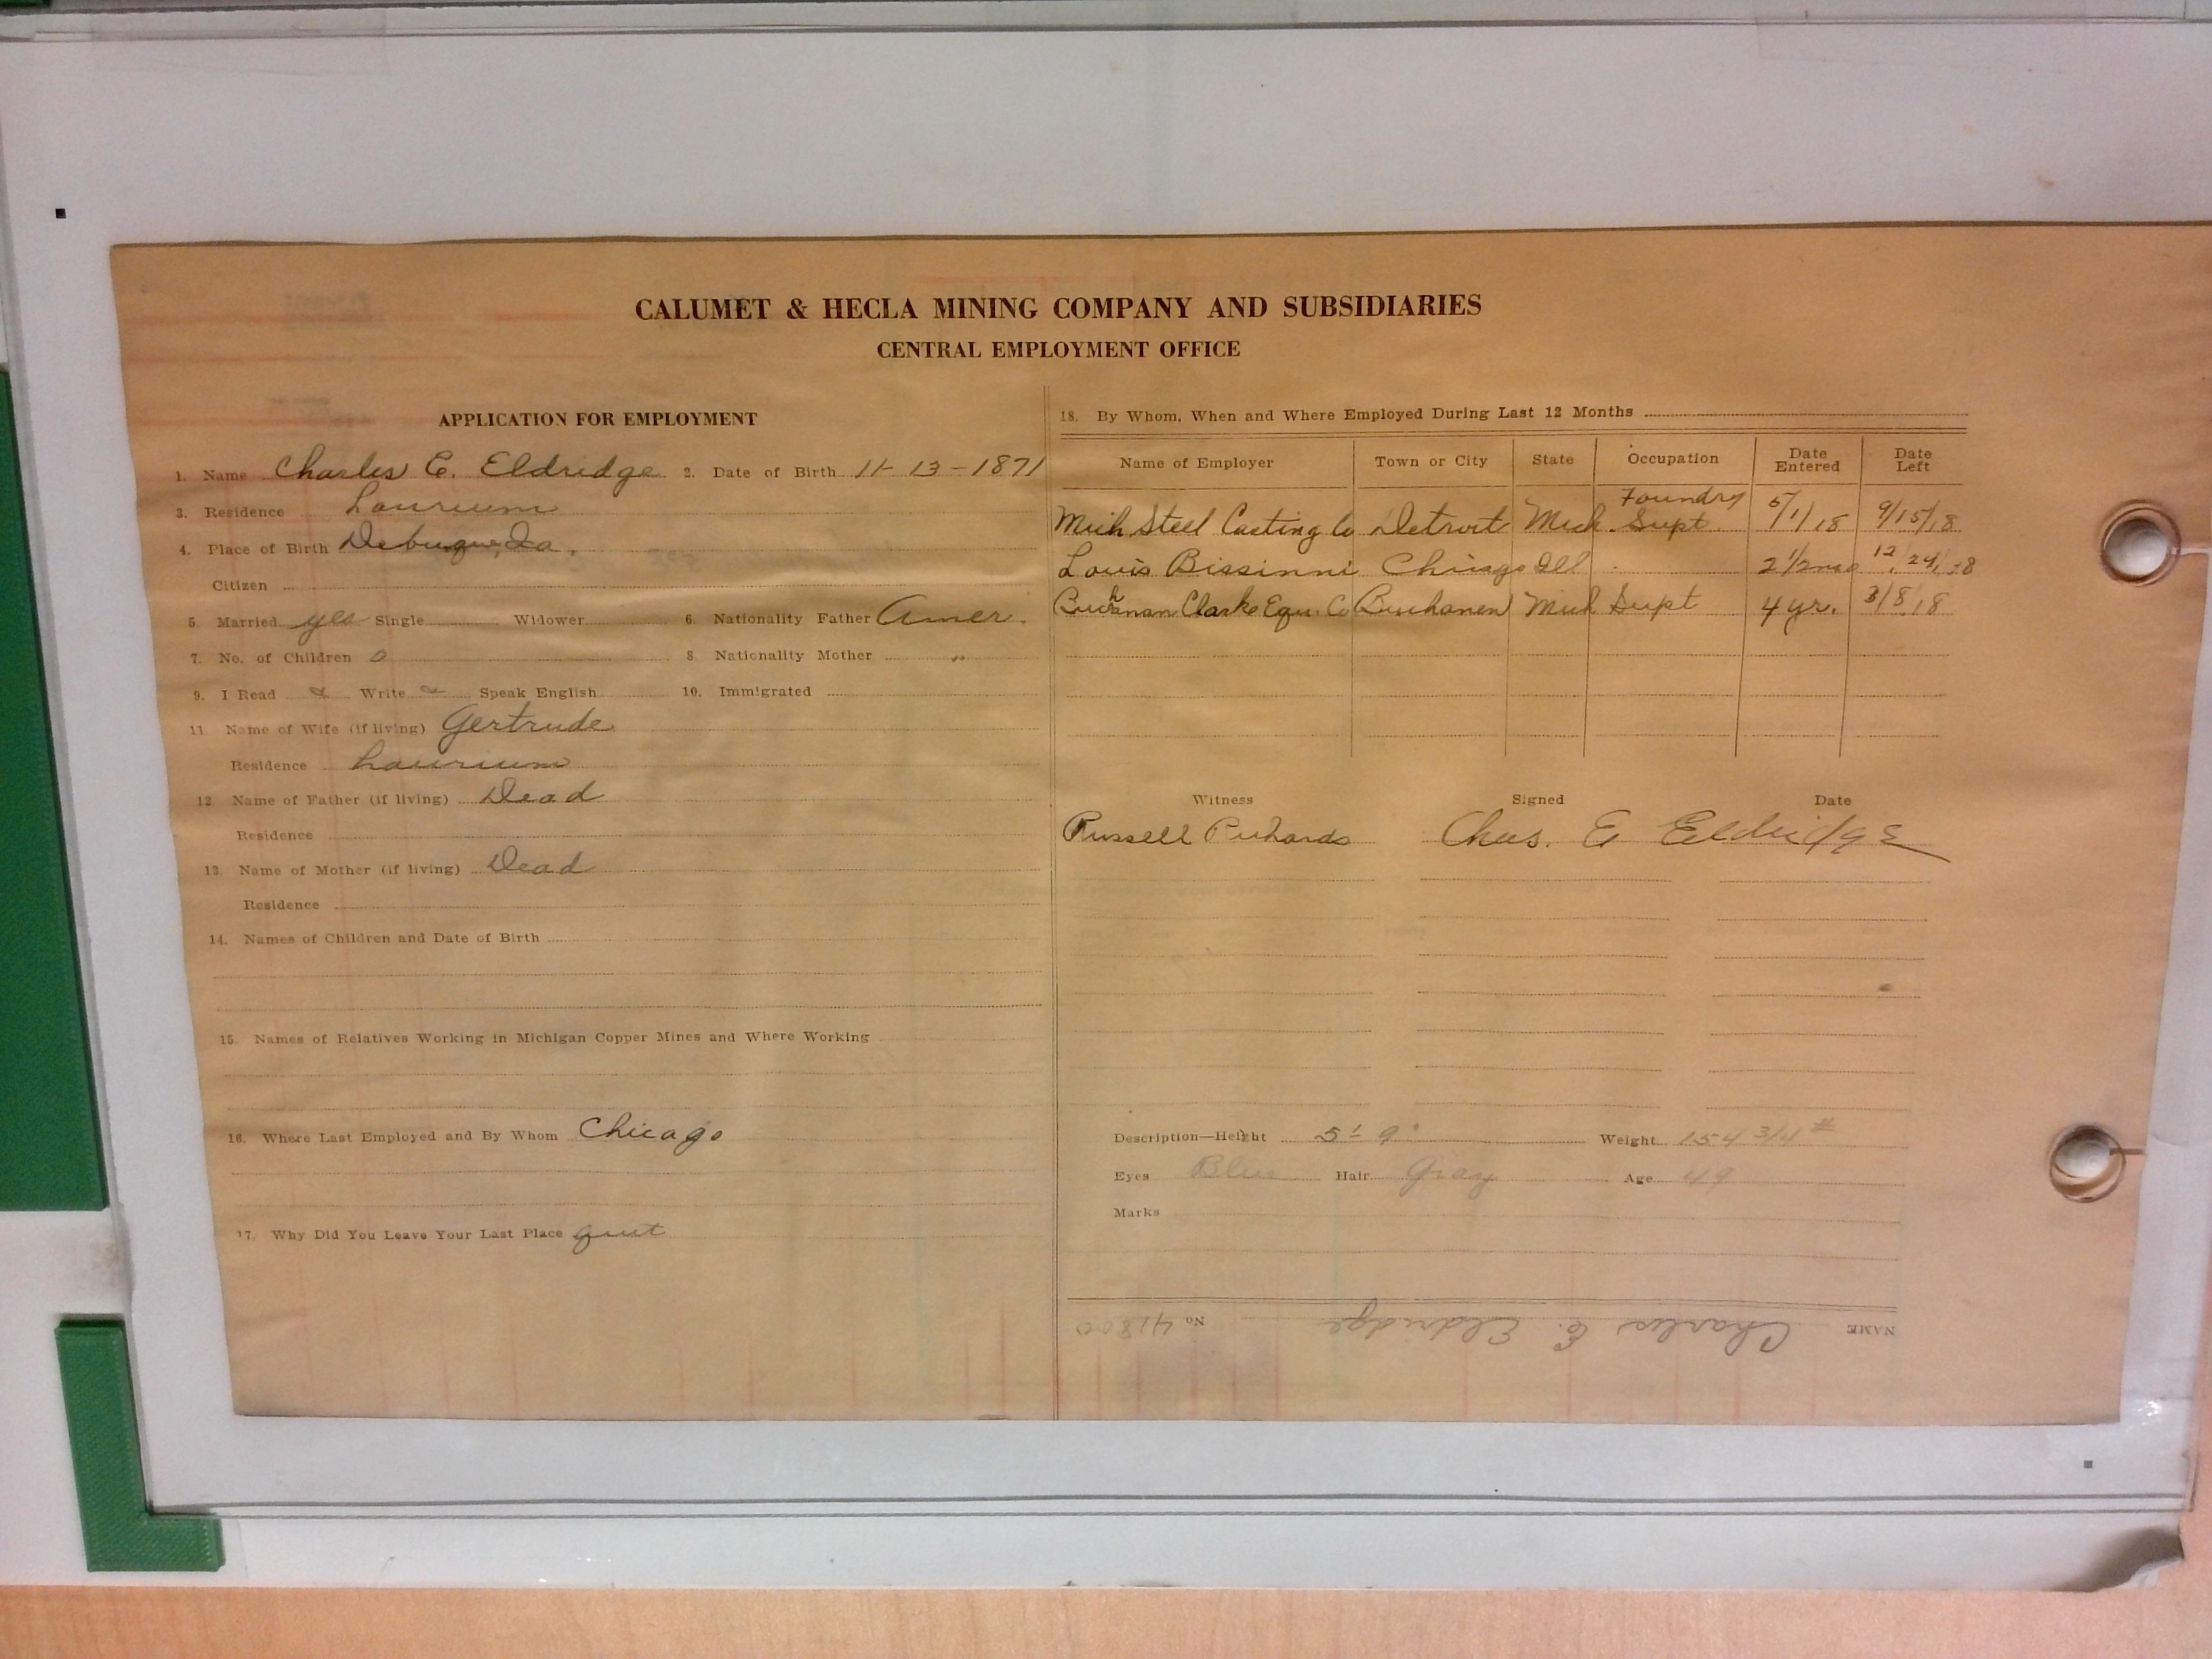 CALUMET & HECLA MINING COMPANY AND SUBSIDIARIES
CENTRAL EMPLOYMENT OFFICE
APPLICATION FOR EMPLOYMENT
1. Name Charles E. Eldridge 2. Date of Birth 11-13-1871
3. Residence Laurium
4. Place of Birth Debuque, Ia.
Citizen
5. Married yes Single Widower 6. Nationality Father Amer.
7. No. of Children 0 8. Nationality Mother "
9. I Read Write Speak English 10. Immigrated
11. Name of Wife (if living) Gertrude
Residence Laurium
12. Name of Father (if living) Dead
Residence
13. Name of Mother (if living) Dead
Residence
14. Names of Children and Date of Birth
15. Names of Relatives Working in Michigan Copper Mines and Where Working
16. Where Last Employed and By Whom Chicago
17. Why Did You Leave Your Last Place quit
18. By Whom, When and Where Employed During Last 12 Months
Name of Employer Town or City State Occupation Date Entered Date Left
Mich Steel Casting Co Detroit Mich Foundry Supt. 5/1/18 9/15/18
Louis Bissinni Chicago Ill 2 1/2 mos 12/24/18
Buchanan Clarke Equ. Co Buchanen Mich Supt 4 yr. 3/8/18
Witness Signed Date
Russell Richards Chas. E Eldridge
Description—Height 5' 9" Weight 154 3/4 #
Eyes Blue Hair Gray Age 49
Marks
NAME Charles E. Eldridge No. 41800